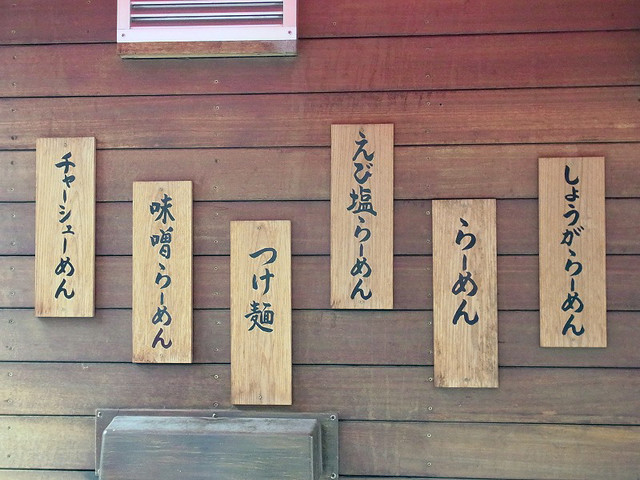 しょうがらーめん
らーめん
えび塩らーめん
つけ麺
味噌らーめん
チャーシューめん